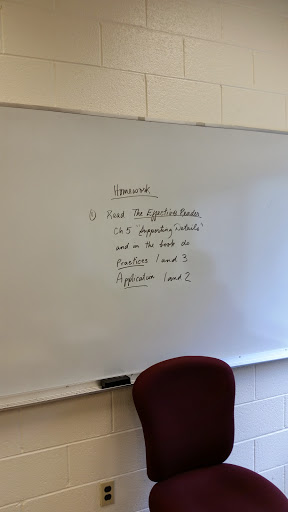 Homework
① Read The Effective Reader
Ch 5 "Supporting Details"
and in the book do
Practices 1 and 3
Application 1 and 2